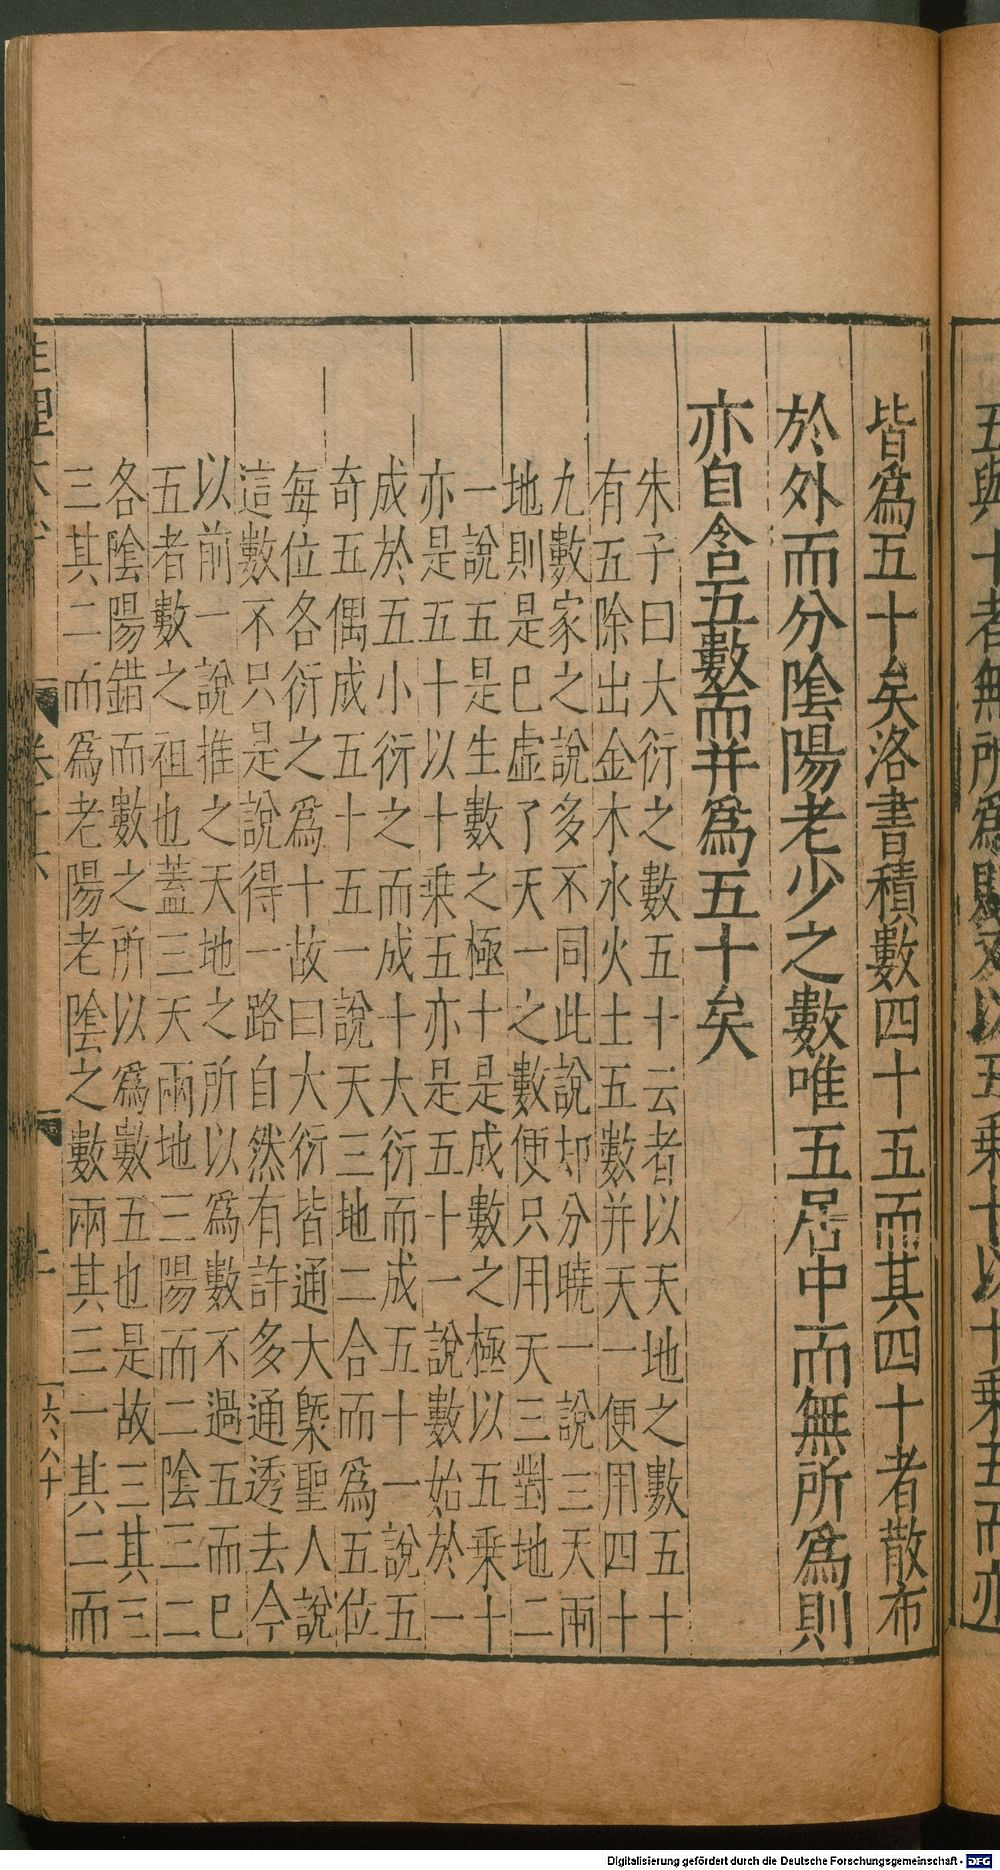 五與十者無所爲則又以五乘十以十乘五而亦
皆爲五十矣洛書積數四十五而其四十者散布
於外而分陰陽老少之數唯五居中而無所爲則
亦自含五數而并爲五十矣
朱子曰大衍之數五十云者以天地之數五十
有五除出金木水火土五數并天一便用四十
九數家之說多不同此說却分曉一說三天兩
地則是巳虛了天一之數便只用天三對地二
一說五是生數之極十是成數之極以五乘十
亦是五十以十乘五亦是五十一說數始於一
成於五小衍之而成十大衍而成五十一說五
奇五偶成五十五一說天三地二合而爲五位
每位各衍之爲十故曰大衍皆通大槩聖人說
這數不只是說得一路自然有許多通透去今
以前一說推之天地之所以爲數不過五而巳
五者數之祖也蓋三天兩地三陽而二陰三二
各陰陽錯而數之所以爲數五也是故三其三
三其二而爲老陽老陰之數兩其三一其二而
性理大
卷十六
六六十
Digitalisierung gefördert durch die Deutsche Forschungsgemeinschaft - DFG